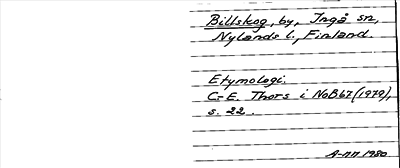 Billskog, by, Ingå sn,
Nylands l., Finland
Etymologi.
C.-E. Thors i NoB 67 (1979),
s. 22.
A-nn 1980